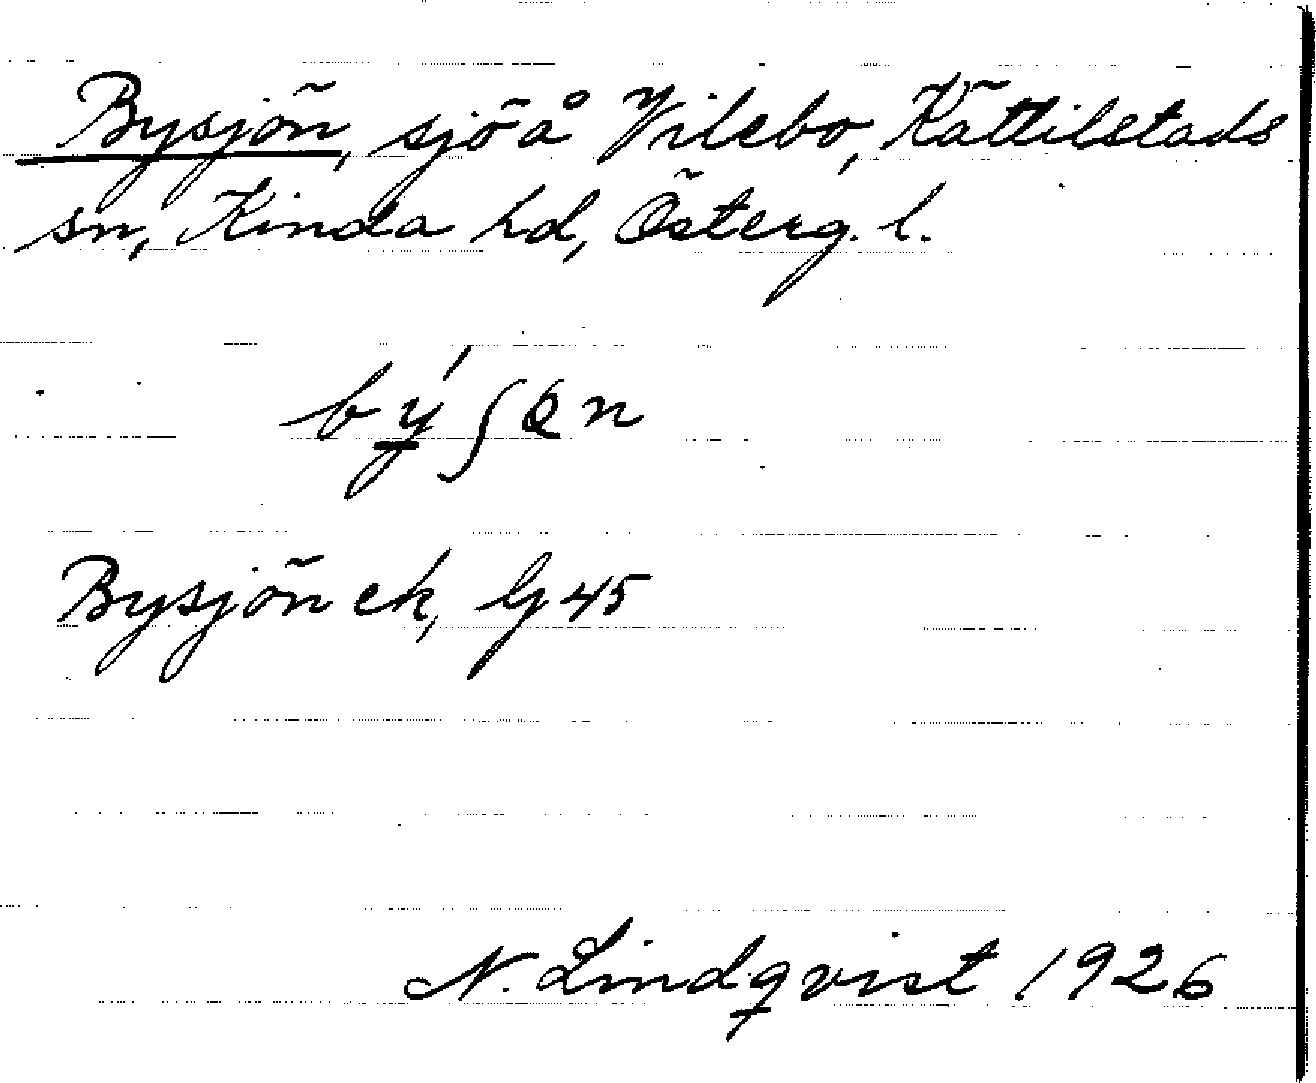 Bysjön, sjö å Vilebo, Kättilstads
sn, Kinda hd, Österg. l.
Bysjön ek, G 45
N. Lindqvist 1926